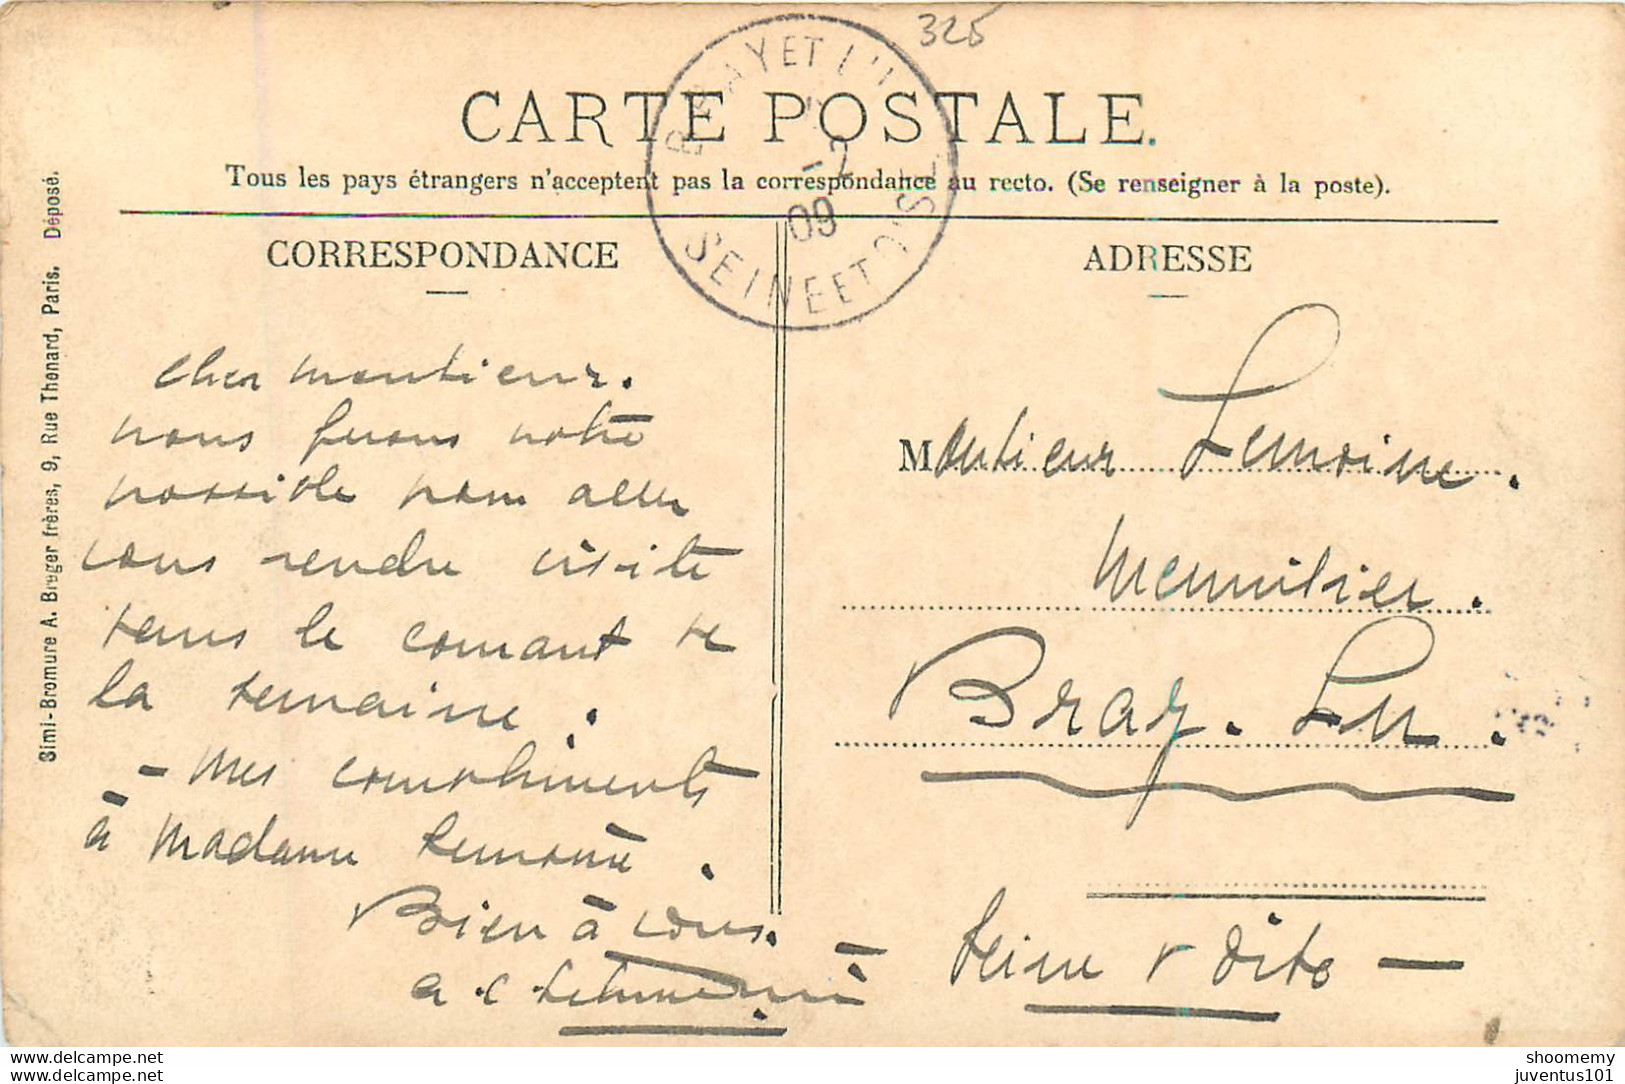 325
BRAY ET LÛ
2
09
SEINE ET OISE
CARTE POSTALE.
Tous les pays étrangers n'acceptent pas la correspondance au recto. (Se renseigner à la poste).
Simi-Bromure A. Breger frères, 9, Rue Thenard, Paris. Déposé.
CORRESPONDANCE
Cher Monsieur.
nous ferons notre
possible pour aller
vous rendre visite
dans le courant de
la semaine.
- Mes compliments
à Madame Lemoine.
Bien à vous.
ADRESSE
Monsieur Lemoine.
Menuisier.
Bray. Lu.
Seine & Oise -
shoomemy
juventus101
shoomemy
juventus101